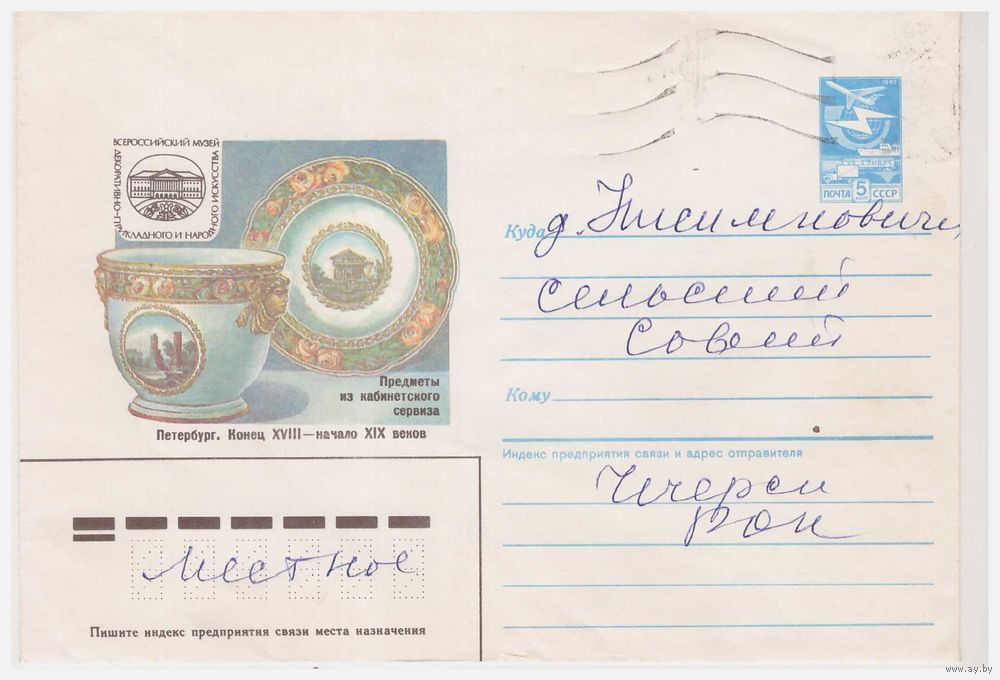 ВСЕРОССИЙСКИЙ МУЗЕЙ ДЕКОРАТИВНО-ПРИКЛАДНОГО И НАРОДНОГО ИСКУССТВА
1982
ПОЧТА 5 КОП СССР
Куда д.
сельский
Совет
Предметы
из кабинетского
сервиза
Кому
Петербург. Конец XVIII—начало XIX веков
Индекс предприятия связи и адрес отправителя
Чечерск
РОК
Местное
Пишите индекс предприятия связи места назначения
www.ay.by